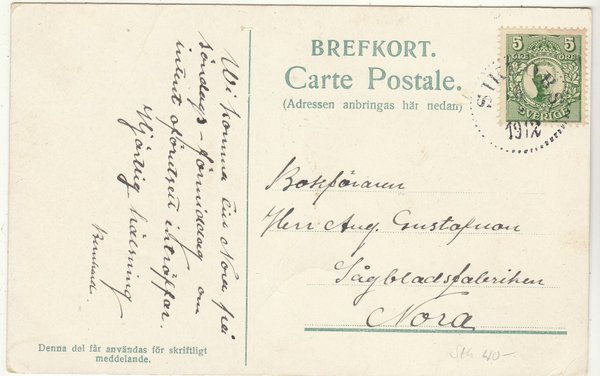 Vi komma till Nora på
söndags-förmiddag om
intent oförutsedt inträffar.
Hjärtlig hälsning
Bernhard.
Denna del får användas för skriftligt
meddelande.
BREFKORT.
Carte Postale.
(Adressen anbringas här nedan)
5 5
SVERIGE
1912
Bokföraren
Herr Aug. Gustafsson
Sågbladsfabriken
Nora
40-